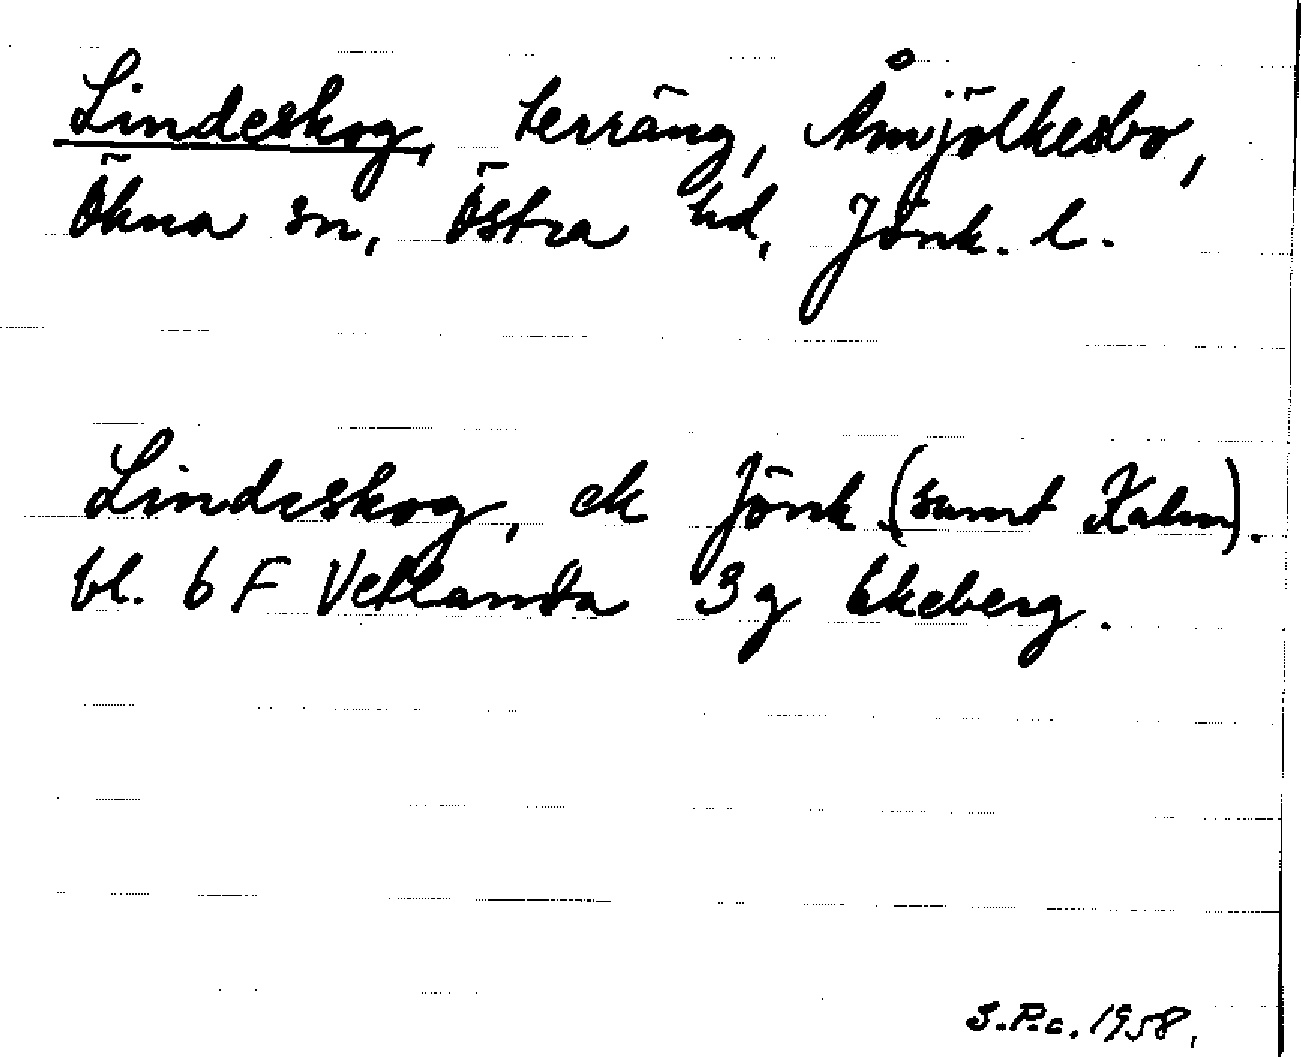 Lindeskog, terräng, Åmjölkesbo,
Ökna sn, Östra hd, Jönk. l.
Lindeskog, ek Jönk. (samt Kalm).
bl. 6 F Vetlanda 3 g Ekeberg.
S.P.c. 1958.